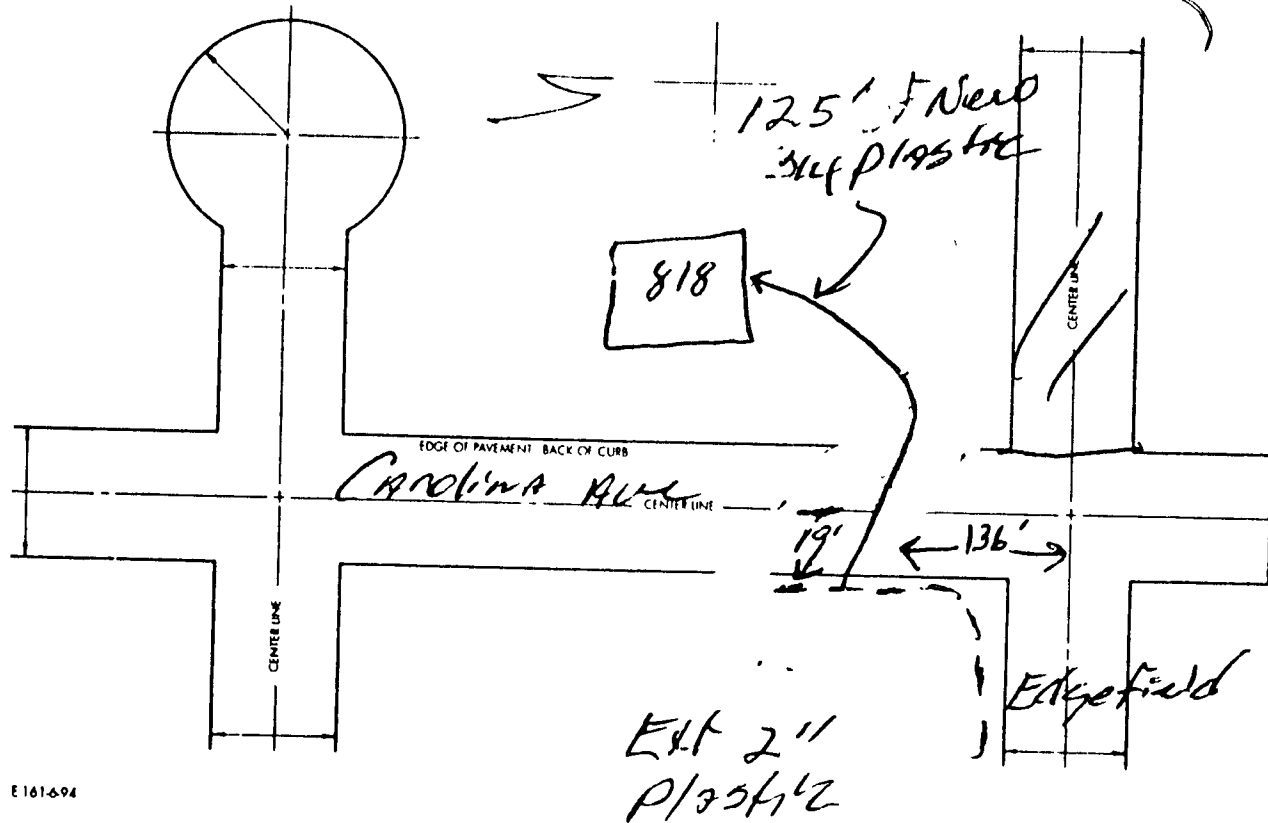 125' of New
3/4 plastic
818
CENTER LINE
EDGE OF PAVEMENT BACK OF CURB
Carolina Ave
CENTER LINE
19'
136'
CENTER LINE
Edgefield
Ext 2"
Plastic
E 161-6-94